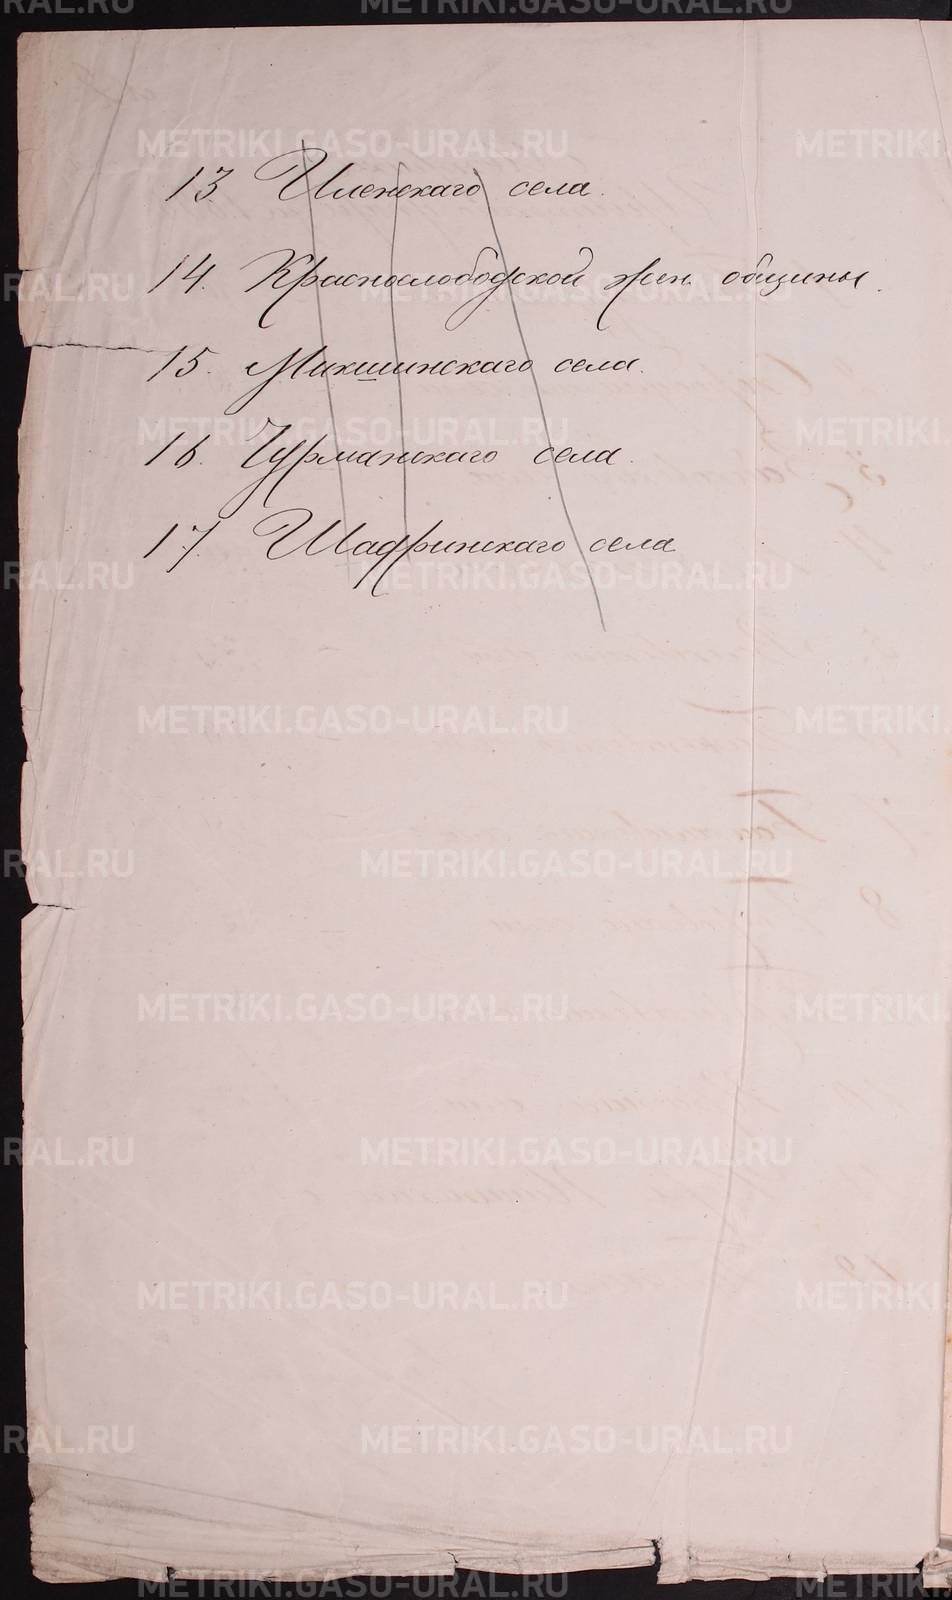 13 Иленскаго села.
14. Краснослободской жен. общины.
15. Микшинскаго села.
16. Чурманскаго села.
17. Шадринскаго села
METRIKI.GASO-URAL.RU